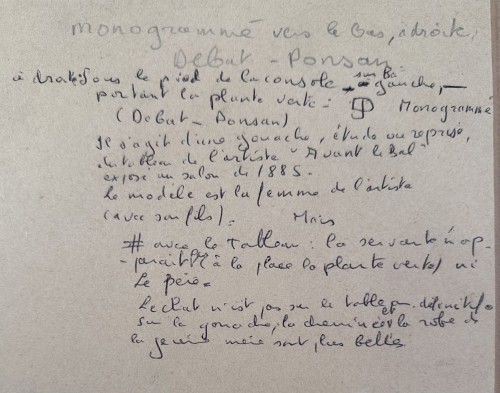 monogrammé vers le bas, à droite,
Debat - Ponsan
à droite sous le pied de la console sur Ba- gauche,
portant la plante verte : Monogrammé
(Debat - Ponsan)
Il s'agit d'une gouache, étude ou reprise,
du tableau de l'artiste "Avant le Bal"
exposé au salon de 1885.
Le modèle est la femme de l'artiste
(avec son fils). Mais
# avec le Tableau : la servante n'ap-
-parait à la place la plante verte) ni
Le Père
Le chat n'est pas sur la table définitif
Sur la gouache, la cheminée et la robe de
la jeune mère sont plus belles